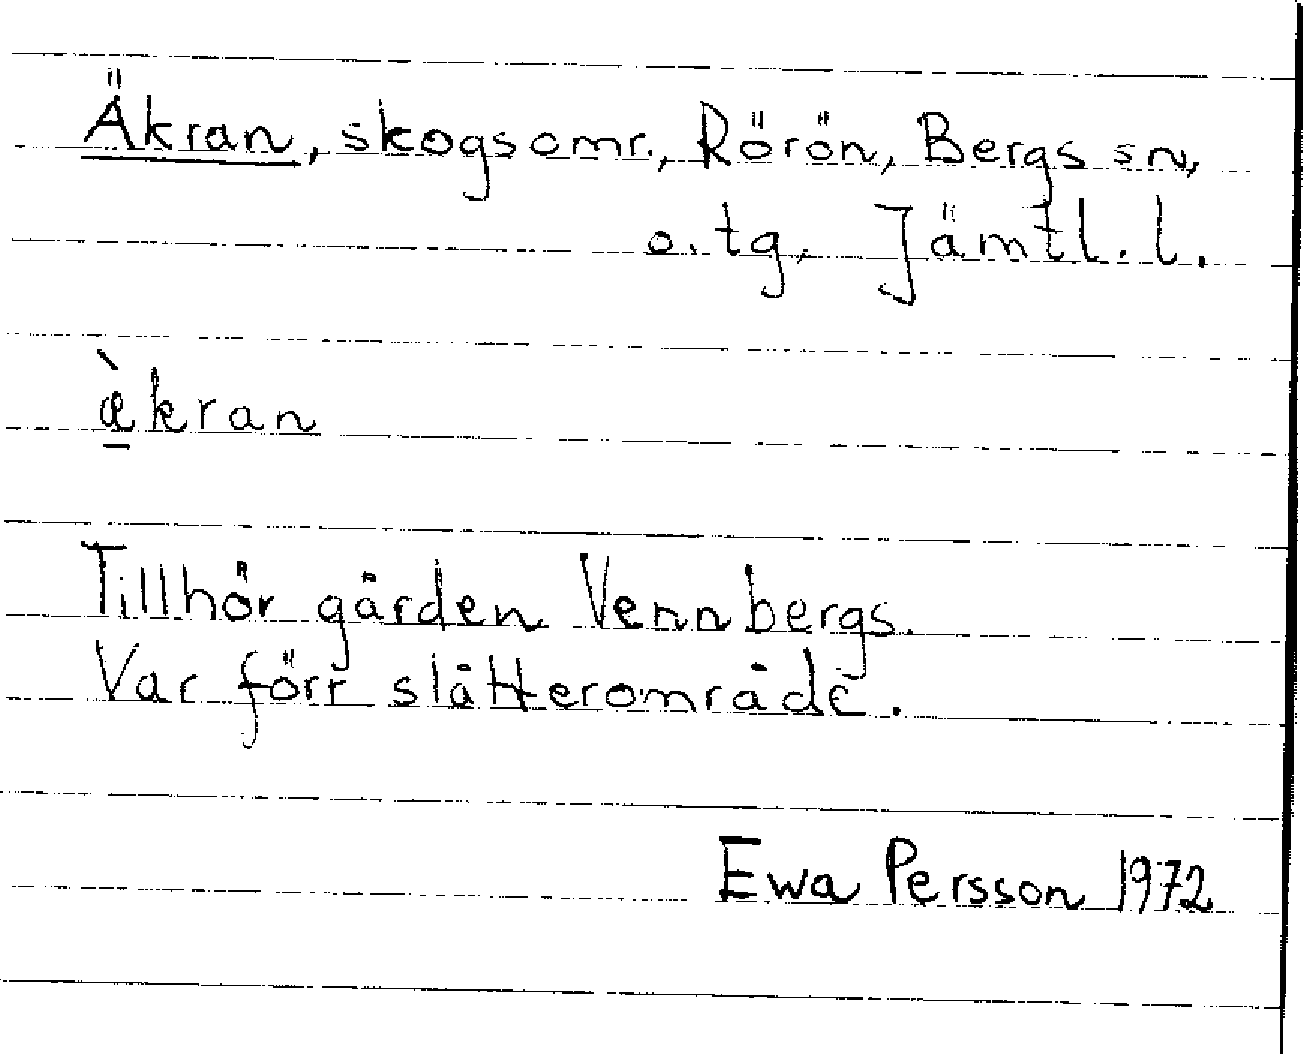 Äkran, skogsomr., Rörön, Bergs sn,
o. tg, Jämtl. l.
æ̠̀kran
Tillhör gården Vennbergs.
Var förr slåtterområde.
Ewa Persson 1972